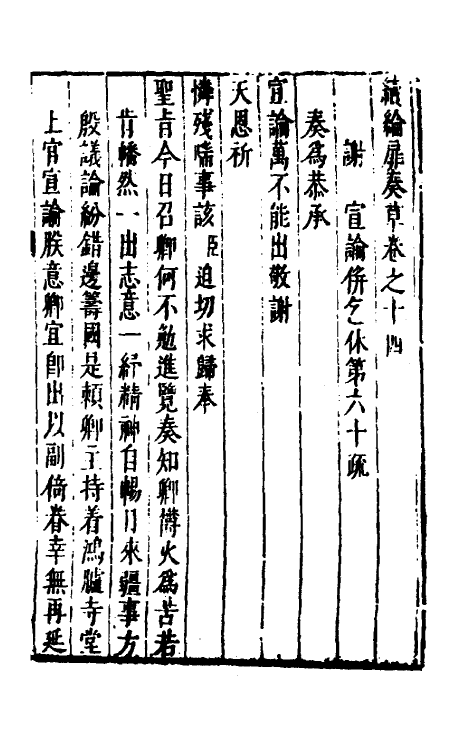 續綸扉奏草卷之十四
謝 宣諭併乞休第六十疏
奏爲恭承
宣諭萬不能出敬謝
天恩祈
憐殘喘事該臣迫切求歸奉
聖旨今日召卿何不勉進覽奏知卿慱火爲苦若
肯幡然一出志意一紓精神自暢日來疆事方
殷議論紛錯邊籌國是頼卿主持着鴻臚寺堂
上官宣諭朕意卿宜卽出以副倚眷幸無再延